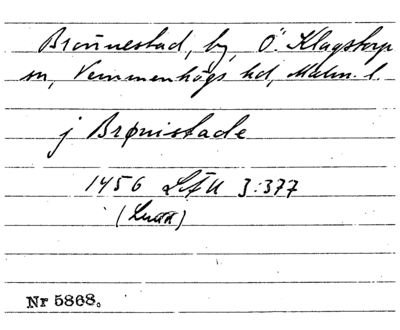 Brönnestad, by, Ö. Klagstorp
sn, Vemmenhögs hd, Malm. l.
j Brønistade
1456 LfU 3:377
Nr 5868.